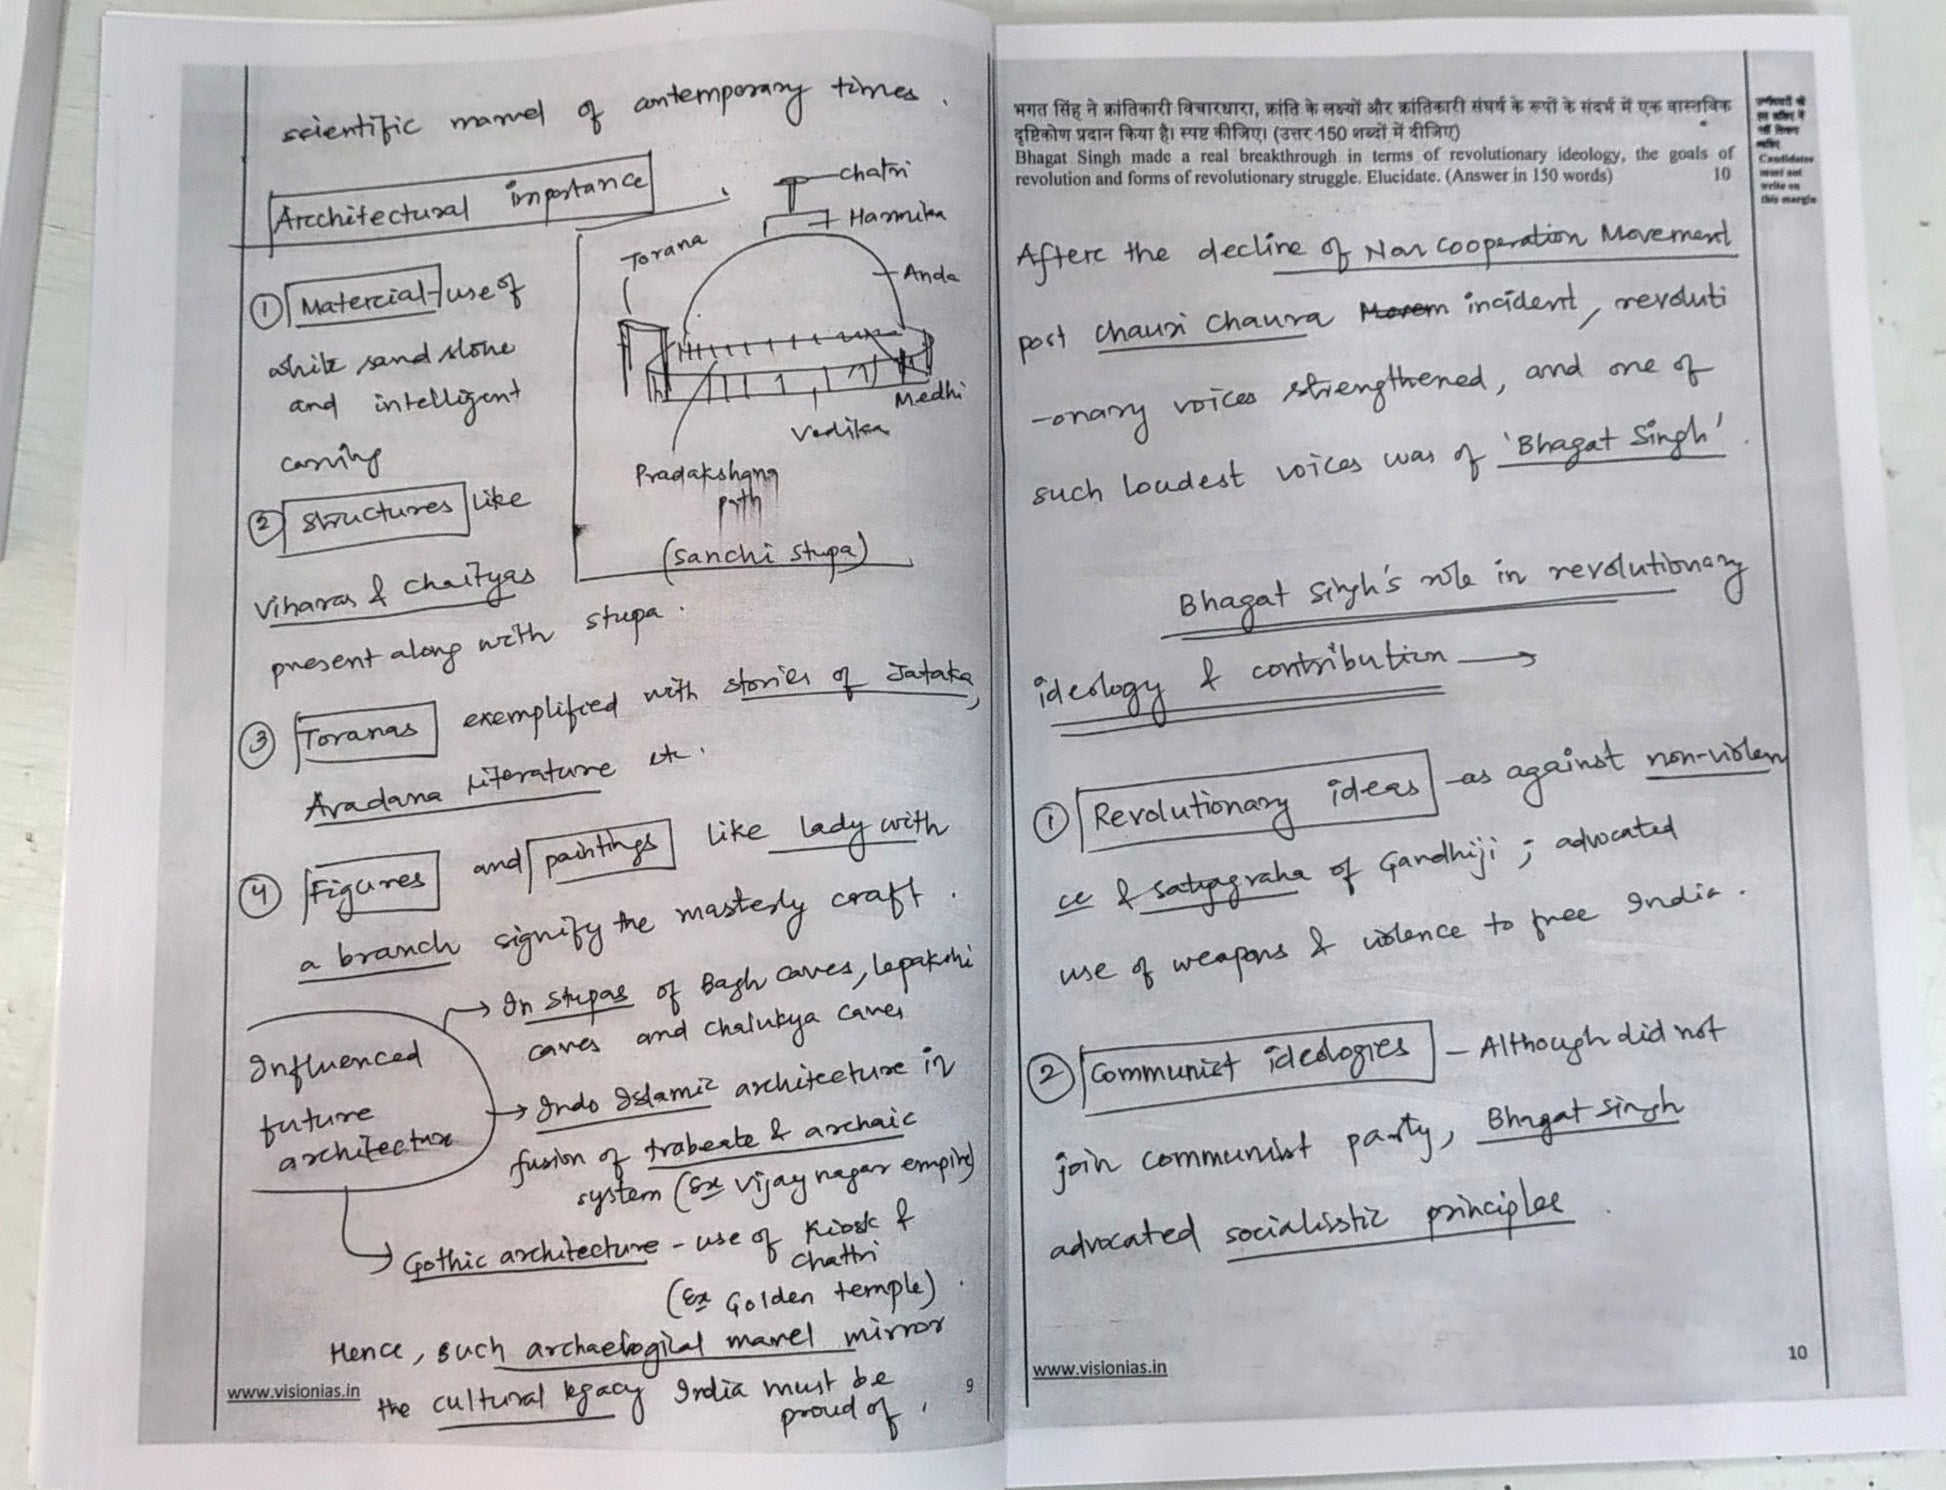 scientific marvel of contemporary times.
Arcchitectural importance
① Matercial - use of
white sand stone
and intelligent
carving
② Structures like
Viharas & Chaityas
present along with stupa.
Torana
Chatri
Harmika
Anda
Medhi
Vedika
Pradakshana
path
(Sanchi Stupa)
③ Toranas exemplified with stories of Jataka,
Avadana literature etc.
④ Figures and paintings like lady with
a branch signify the masterly craft.
Influenced
future
architecture
→ In stupas of Bagh caves, lepakshi
caves and Chalukya caves
→ Indo Islamic architecture in
fusion of trabeate & archaic
system (Ex Vijay nagar empire)
→ Gothic architecture - use of Kiosk &
Chattri
(Ex Golden temple).
Hence, such archaelogical marvel mirror
the cultural legacy India must be
proud of.
www.visionias.in
9
भगत सिंह ने क्रांतिकारी विचारधारा, क्रांति के लक्ष्यों और क्रांतिकारी संघर्ष के रूपों के संदर्भ में एक वास्तविक
दृष्टिकोण प्रदान किया है। स्पष्ट कीजिए। (उत्तर 150 शब्दों में दीजिए)
Bhagat Singh made a real breakthrough in terms of revolutionary ideology, the goals of
revolution and forms of revolutionary struggle. Elucidate. (Answer in 150 words) 10
Candidates
must not
write on
this margin
Afterc the decline of Non Cooperation Movement
post Chauri Chaura incident, revoluti
-onary voices strengthened, and one of
such loudest voices was of 'Bhagat Singh'.
Bhagat Singh's role in revolutionary
ideology & contribution →
① Revolutionary ideas - as against non-violen
ce & satyagraha of Gandhiji ; advocated
use of weapons & violence to free India.
② Communist ideologies - Although did not
join communist party, Bhagat Singh
advocated socialistic principles.
www.visionias.in
10